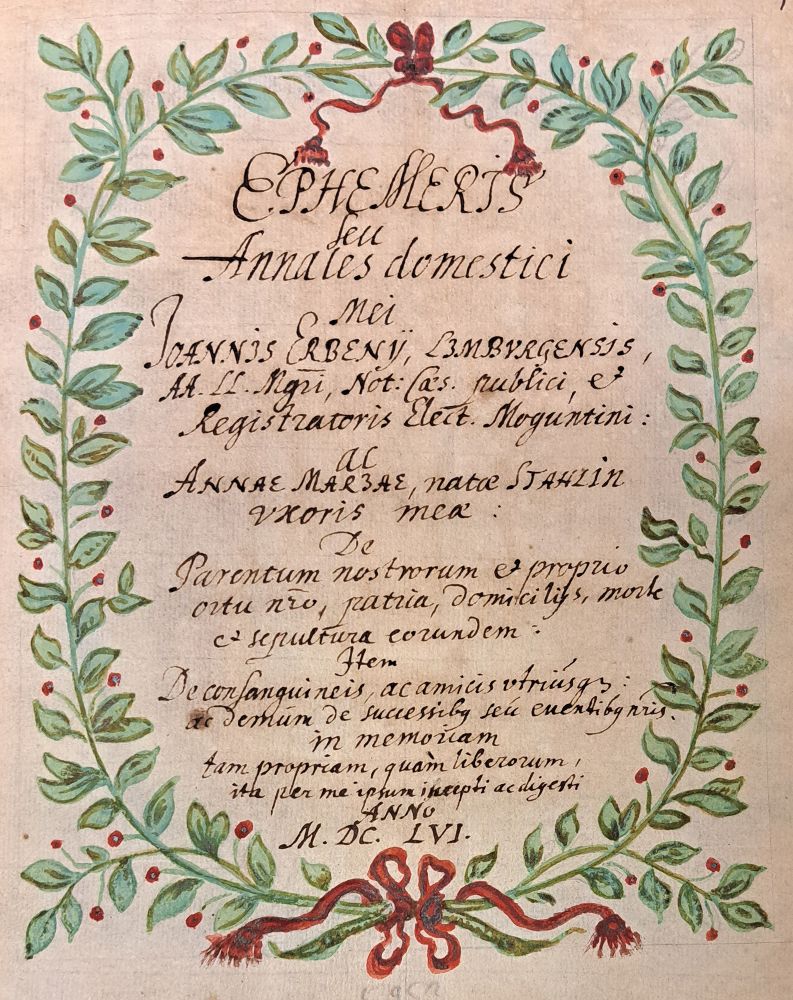 EPHEMERIS
seu
Annales domestici
Mei
IOANNIS ERBENIJ, LIMBURGENSIS,
AA. LL. Mgri, Not: Cæs. publici, &
Registratoris Elect. Moguntini:
ac
ANNAE MARIAE, natæ STAHLIN
vxoris meæ:
De
Parentum nostrorum & proprio
ortu nro, patria, domicilijs, morte
& sepultura eorundem:
Item
De consanguineis, ac amicis vtriúsq3:
ac demùm de successibq seu eventibq nris.
in memoriam
tam propriam, quàm liberorum,
ita per me ipsum incepti ac digesti
ANNO
M. DC. LVI.